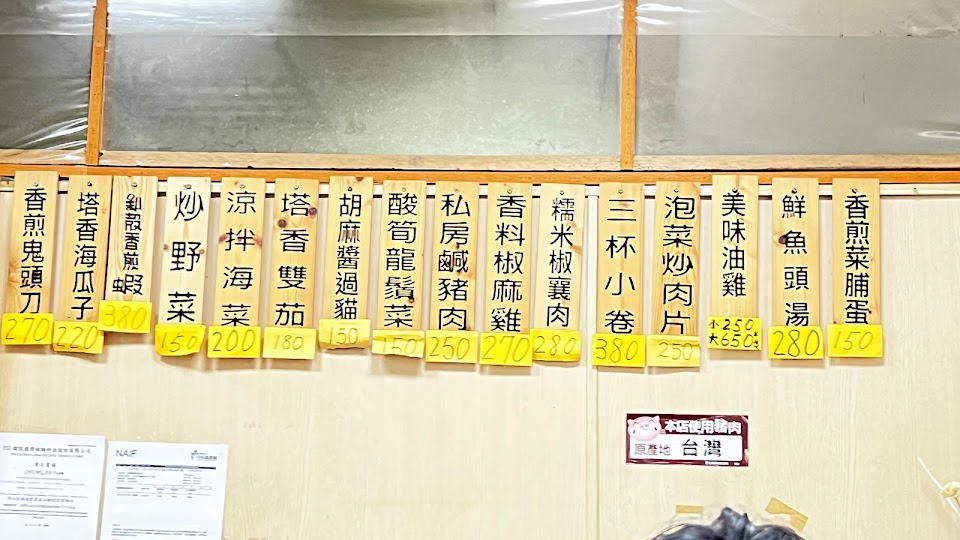 香煎鬼頭刀
270
塔香海瓜子
220
剝殼香煎蝦
380
炒野菜
150
涼拌海菜
200
塔香雙茄
180
胡麻醬過貓
150
酸筍龍鬚菜
150
私房鹹豬肉
250
香料椒麻雞
270
糯米椒襄肉
280
三杯小卷
380
泡菜炒肉片
250
美味油雞
小250
大650
鮮魚頭湯
280
香煎菜脯蛋
150
本店使用豬肉
原產地 台灣
NAIF